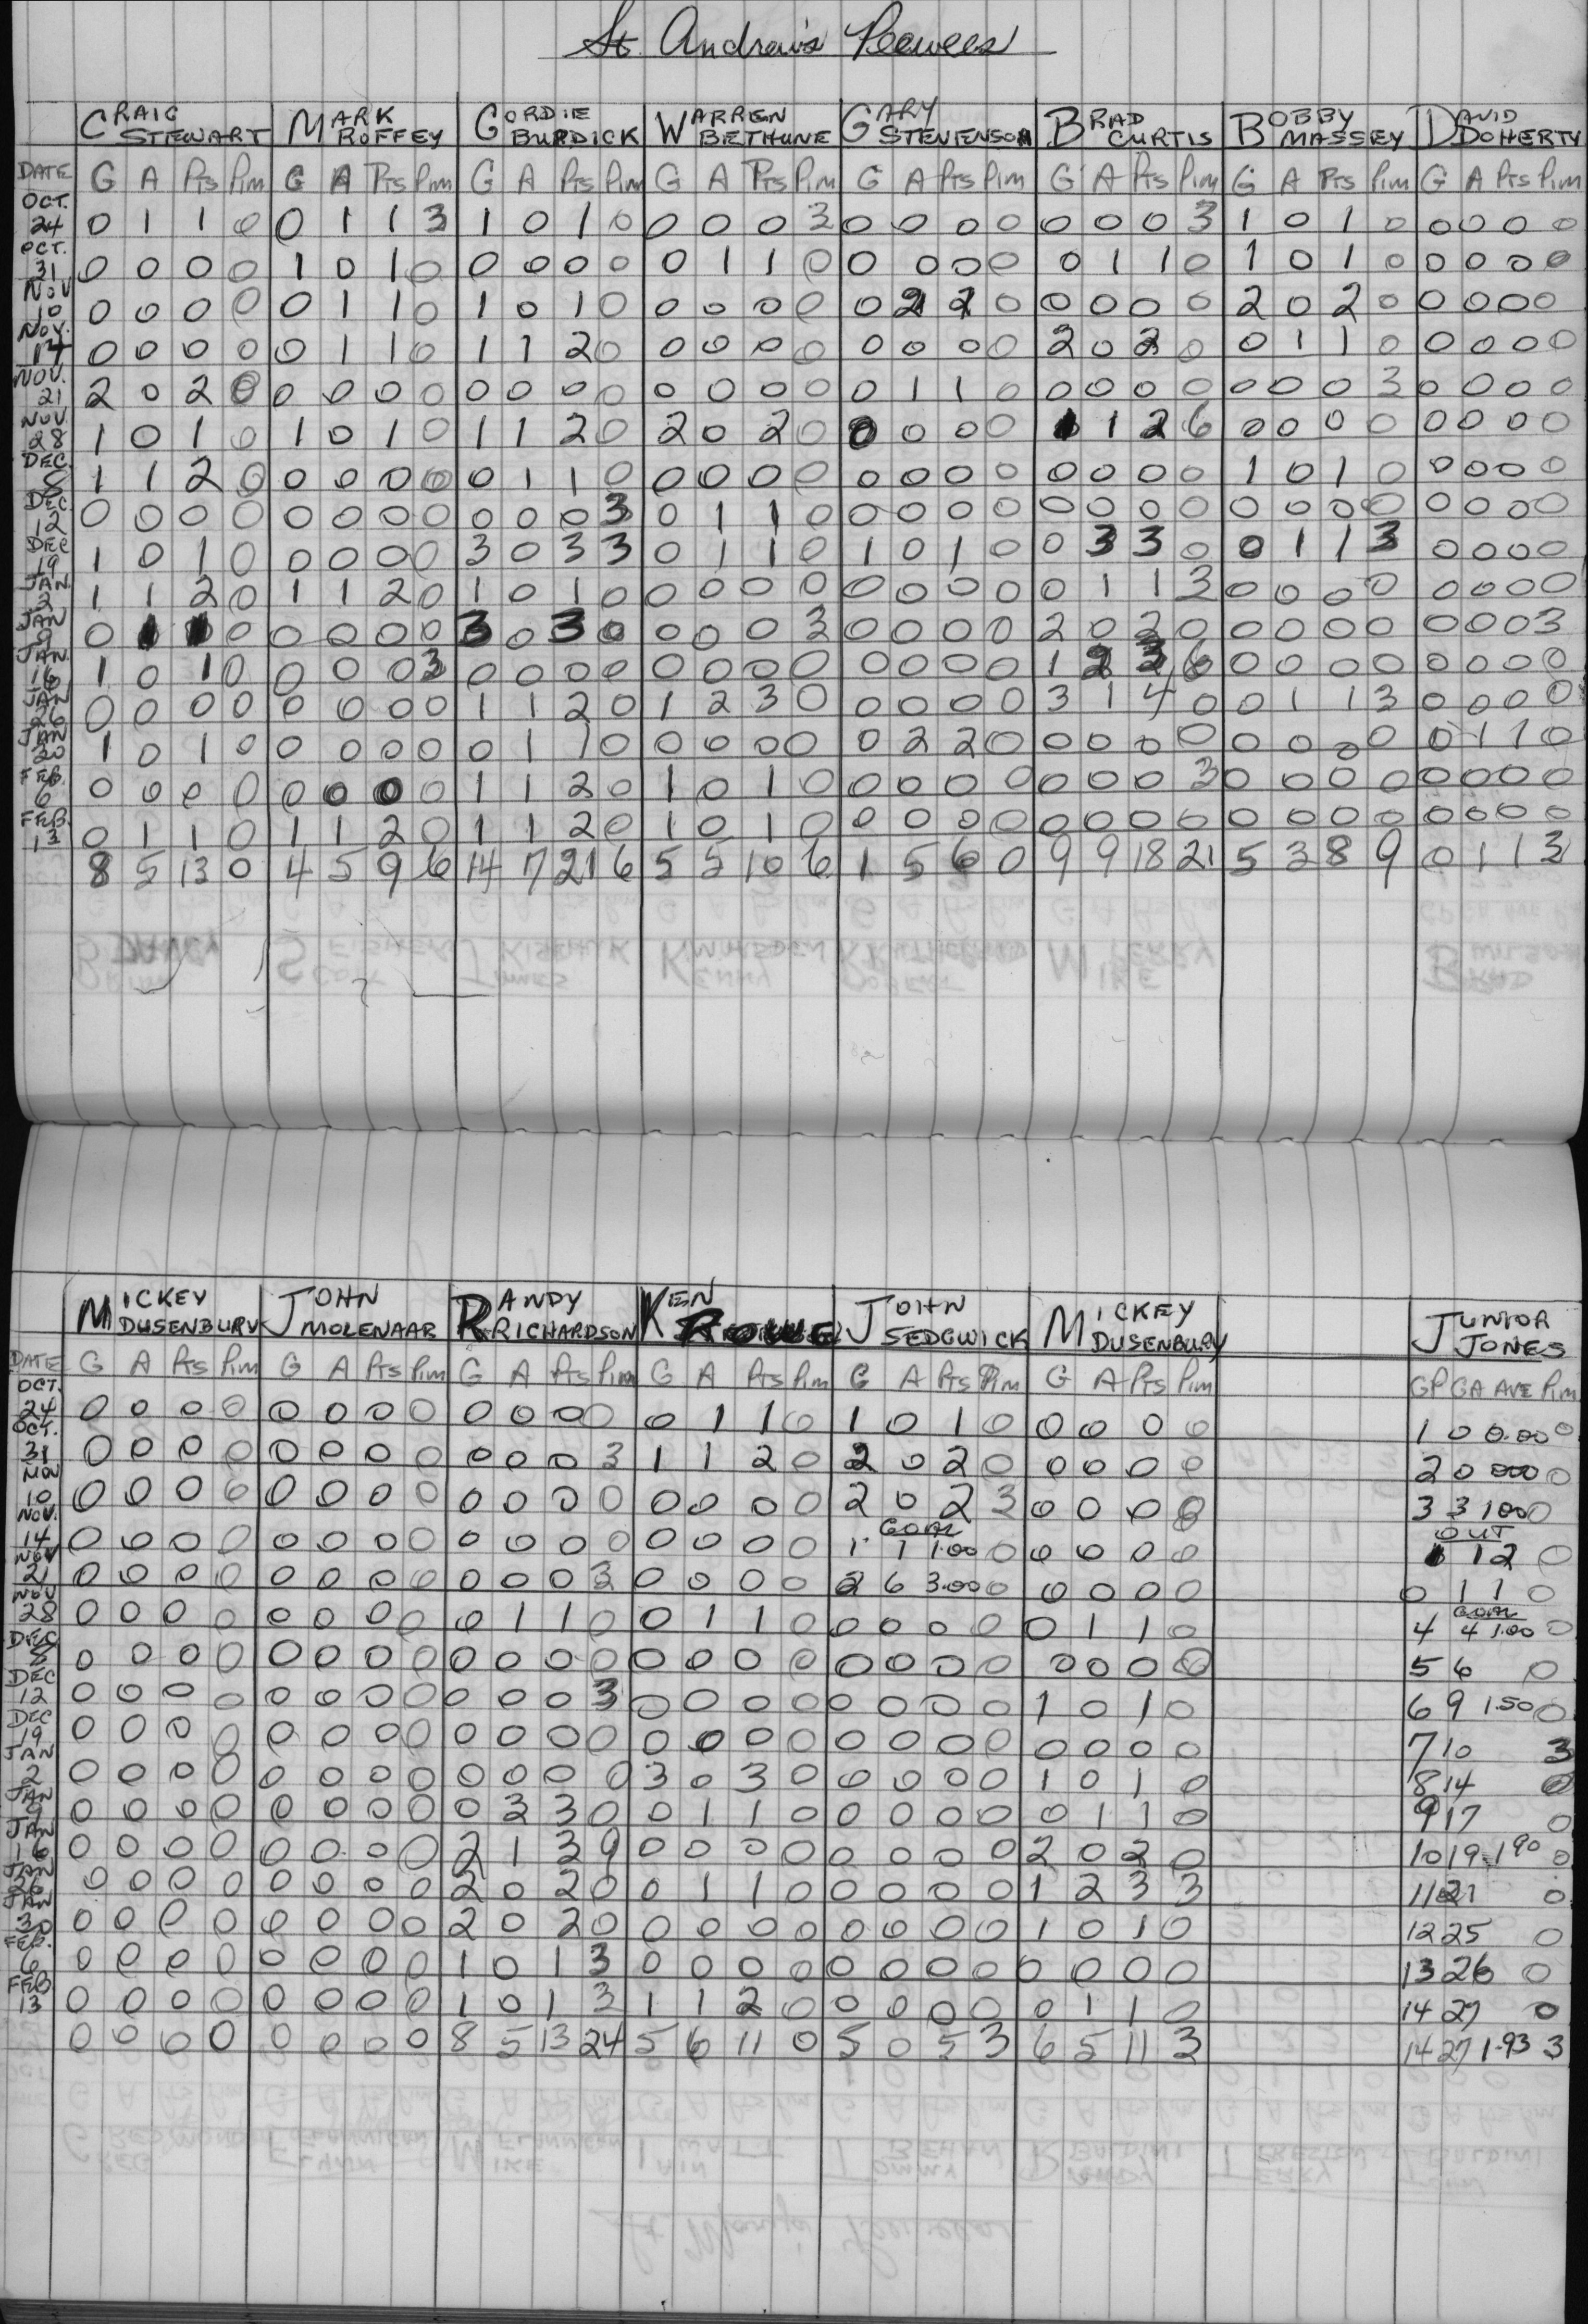 St. Andrew's Peewees
CRAIG STEWART MARK ROFFEY GORDIE BURDICK WARREN BETHUNE GARY STEVENSON BRAD CURTIS BOBBY MASSEY DAVID DOHERTY
DATE G A Pts Pim G A Pts Pim G A Pts Pim G A Pts Pim G A Pts Pim G A Pts Pim G A Pts Pim G A Pts Pim
OCT. 24 0 1 1 0 0 1 1 3 1 0 1 0 0 0 0 3 0 0 0 0 0 0 0 3 1 0 1 0 0 0 0 0
OCT. 31 0 0 0 0 1 0 1 0 0 0 0 0 0 1 1 0 0 0 0 0 0 1 1 0 1 0 1 0 0 0 0 0
NOV 10 0 0 0 0 0 1 1 0 1 0 1 0 0 0 0 0 0 2 2 0 0 0 0 0 2 0 2 0 0 0 0 0
NOV. 14 0 0 0 0 0 1 1 0 1 1 2 0 0 0 0 0 0 0 0 0 2 0 2 0 0 1 1 0 0 0 0 0
NOV. 21 2 0 2 0 0 0 0 0 0 0 0 0 0 0 0 0 0 1 1 0 0 0 0 0 0 0 0 3 0 0 0 0
NOV 28 1 0 1 0 1 0 1 0 1 1 2 0 2 0 2 0 0 0 0 0 1 1 2 6 0 0 0 0 0 0 0 0
DEC. 1 1 2 0 0 0 0 0 0 1 1 0 0 0 0 0 0 0 0 0 0 0 0 0 1 0 1 0 0 0 0 0
DEC. 12 0 0 0 0 0 0 0 0 0 0 0 3 0 1 1 0 0 0 0 0 0 0 0 0 0 0 0 0 0 0 0 0
DEC 19 1 0 1 0 0 0 0 0 3 0 3 3 0 1 1 0 1 0 1 0 0 3 3 0 0 1 1 3 0 0 0 0
JAN 2 1 1 2 0 1 1 2 0 1 0 1 0 0 0 0 0 0 0 0 0 0 1 1 3 0 0 0 0 0 0 0 0
JAN 9 0 1 1 0 0 0 0 0 3 0 3 0 0 0 0 3 0 0 0 0 2 0 2 0 0 0 0 0 0 0 0 3
JAN. 16 1 0 1 0 0 0 0 3 0 0 0 0 0 0 0 0 0 0 0 0 1 2 3 6 0 0 0 0 0 0 0 0
JAN 26 0 0 0 0 0 0 0 0 1 1 2 0 1 2 3 0 0 0 0 0 3 1 4 0 0 1 1 3 0 0 0 0
JAN 30 1 0 1 0 0 0 0 0 0 1 1 0 0 0 0 0 0 2 2 0 0 0 0 0 0 0 0 0 0 1 1 0
FEB. 6 0 0 0 0 0 0 0 0 1 1 2 0 1 0 1 0 0 0 0 0 0 0 0 3 0 0 0 0 0 0 0 0
FEB. 13 0 1 1 0 1 1 2 0 1 1 2 0 1 0 1 0 0 0 0 0 0 0 0 0 0 0 0 0 0 0 0 0
8 5 13 0 4 5 9 6 14 7 21 6 5 5 10 6 1 5 6 0 9 9 18 21 5 3 8 9 0 1 1 3
MICKEY DUSENBURY JOHN MOLENAAR RANDY RICHARDSON KEN ROWE JOHN SEDGWICK MICKEY DUSENBURY JUNIOR JONES
DATE G A Pts Pim G A Pts Pim G A Pts Pim G A Pts Pim G A Pts Pim G A Pts Pim GP GA AVE Pim
OCT. 24 0 0 0 0 0 0 0 0 0 0 0 0 0 1 1 0 1 0 1 0 0 0 0 0 1 0 0.00 0
OCT. 31 0 0 0 0 0 0 0 0 0 0 0 3 1 1 2 0 2 0 2 0 0 0 0 0 2 0 000 0
NOV 10 0 0 0 0 0 0 0 0 0 0 0 0 0 0 0 0 2 0 2 3 0 0 0 0 3 3 1.00 0
GOAL OUT
NOV. 14 0 0 0 0 0 0 0 0 0 0 0 0 0 0 0 0 1 1 1.00 0 0 0 0 0 1 1 2 0
NOV 21 0 0 0 0 0 0 0 0 0 0 0 3 0 0 0 0 2 6 3.00 0 0 0 0 0 0 1 1 0
GOAL
NOV 28 0 0 0 0 0 0 0 0 0 1 1 0 0 1 1 0 0 0 0 0 0 1 1 0 4 4 1.00 0
DEC 0 0 0 0 0 0 0 0 0 0 0 0 0 0 0 0 0 0 0 0 0 0 0 0 5 6 0
DEC 12 0 0 0 0 0 0 0 0 0 0 0 3 0 0 0 0 0 0 0 0 1 0 1 0 6 9 1.50 0
DEC 19 0 0 0 0 0 0 0 0 0 0 0 0 0 0 0 0 0 0 0 0 0 0 0 0 7 10 3
JAN 2 0 0 0 0 0 0 0 0 0 0 0 0 3 0 3 0 0 0 0 0 1 0 1 0 8 14 0
JAN 9 0 0 0 0 0 0 0 0 0 3 3 0 0 1 1 0 0 0 0 0 0 1 1 0 9 17 0
JAN 16 0 0 0 0 0 0 0 0 2 1 3 9 0 0 0 0 0 0 0 0 2 0 2 0 10 19 1.90 0
JAN 26 0 0 0 0 0 0 0 0 2 0 2 0 0 1 1 0 0 0 0 0 1 2 3 3 11 21 0
JAN 30 0 0 0 0 0 0 0 0 2 0 2 0 0 0 0 0 0 0 0 0 1 0 1 0 12 25 0
FEB. 6 0 0 0 0 0 0 0 0 1 0 1 3 0 0 0 0 0 0 0 0 0 0 0 0 13 26 0
FEB 13 0 0 0 0 0 0 0 0 1 0 1 3 1 1 2 0 0 0 0 0 0 1 1 0 14 27 0
0 0 0 0 0 0 0 0 8 5 13 24 5 6 11 0 5 0 5 3 6 5 11 3 14 27 1.93 3